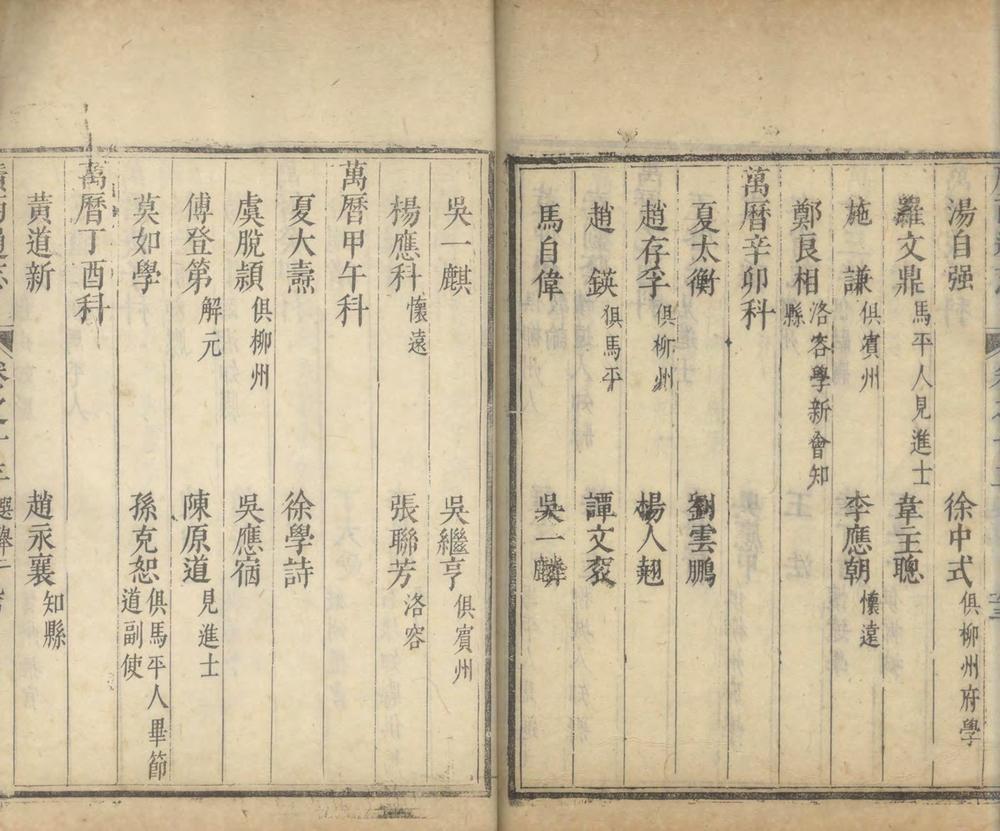 湯自强 徐中式 俱柳州府學
羅文鼎 馬平人見進士 韋王聰
施謙 俱賓州 李應朝 懷遠
鄭良相 洛容學新會知縣
萬曆辛卯科
夏太衡 劉雲鵬
趙存孚 俱柳州 楊人翹
趙鍈 俱馬平 譚文
馬自偉 吳一麟
吳一麒 吳繼亨 俱賓州
楊應科 懷遠 張聯芳 洛容
萬曆甲午科
夏大燾 徐學詩
虞脫潁 俱柳州 吳應宿
傅登第 解元 陳原道 見進士
莫如學 孫克恕 俱馬平人畢節道副使
萬曆丁酉科
黃道新 趙永襄 知縣